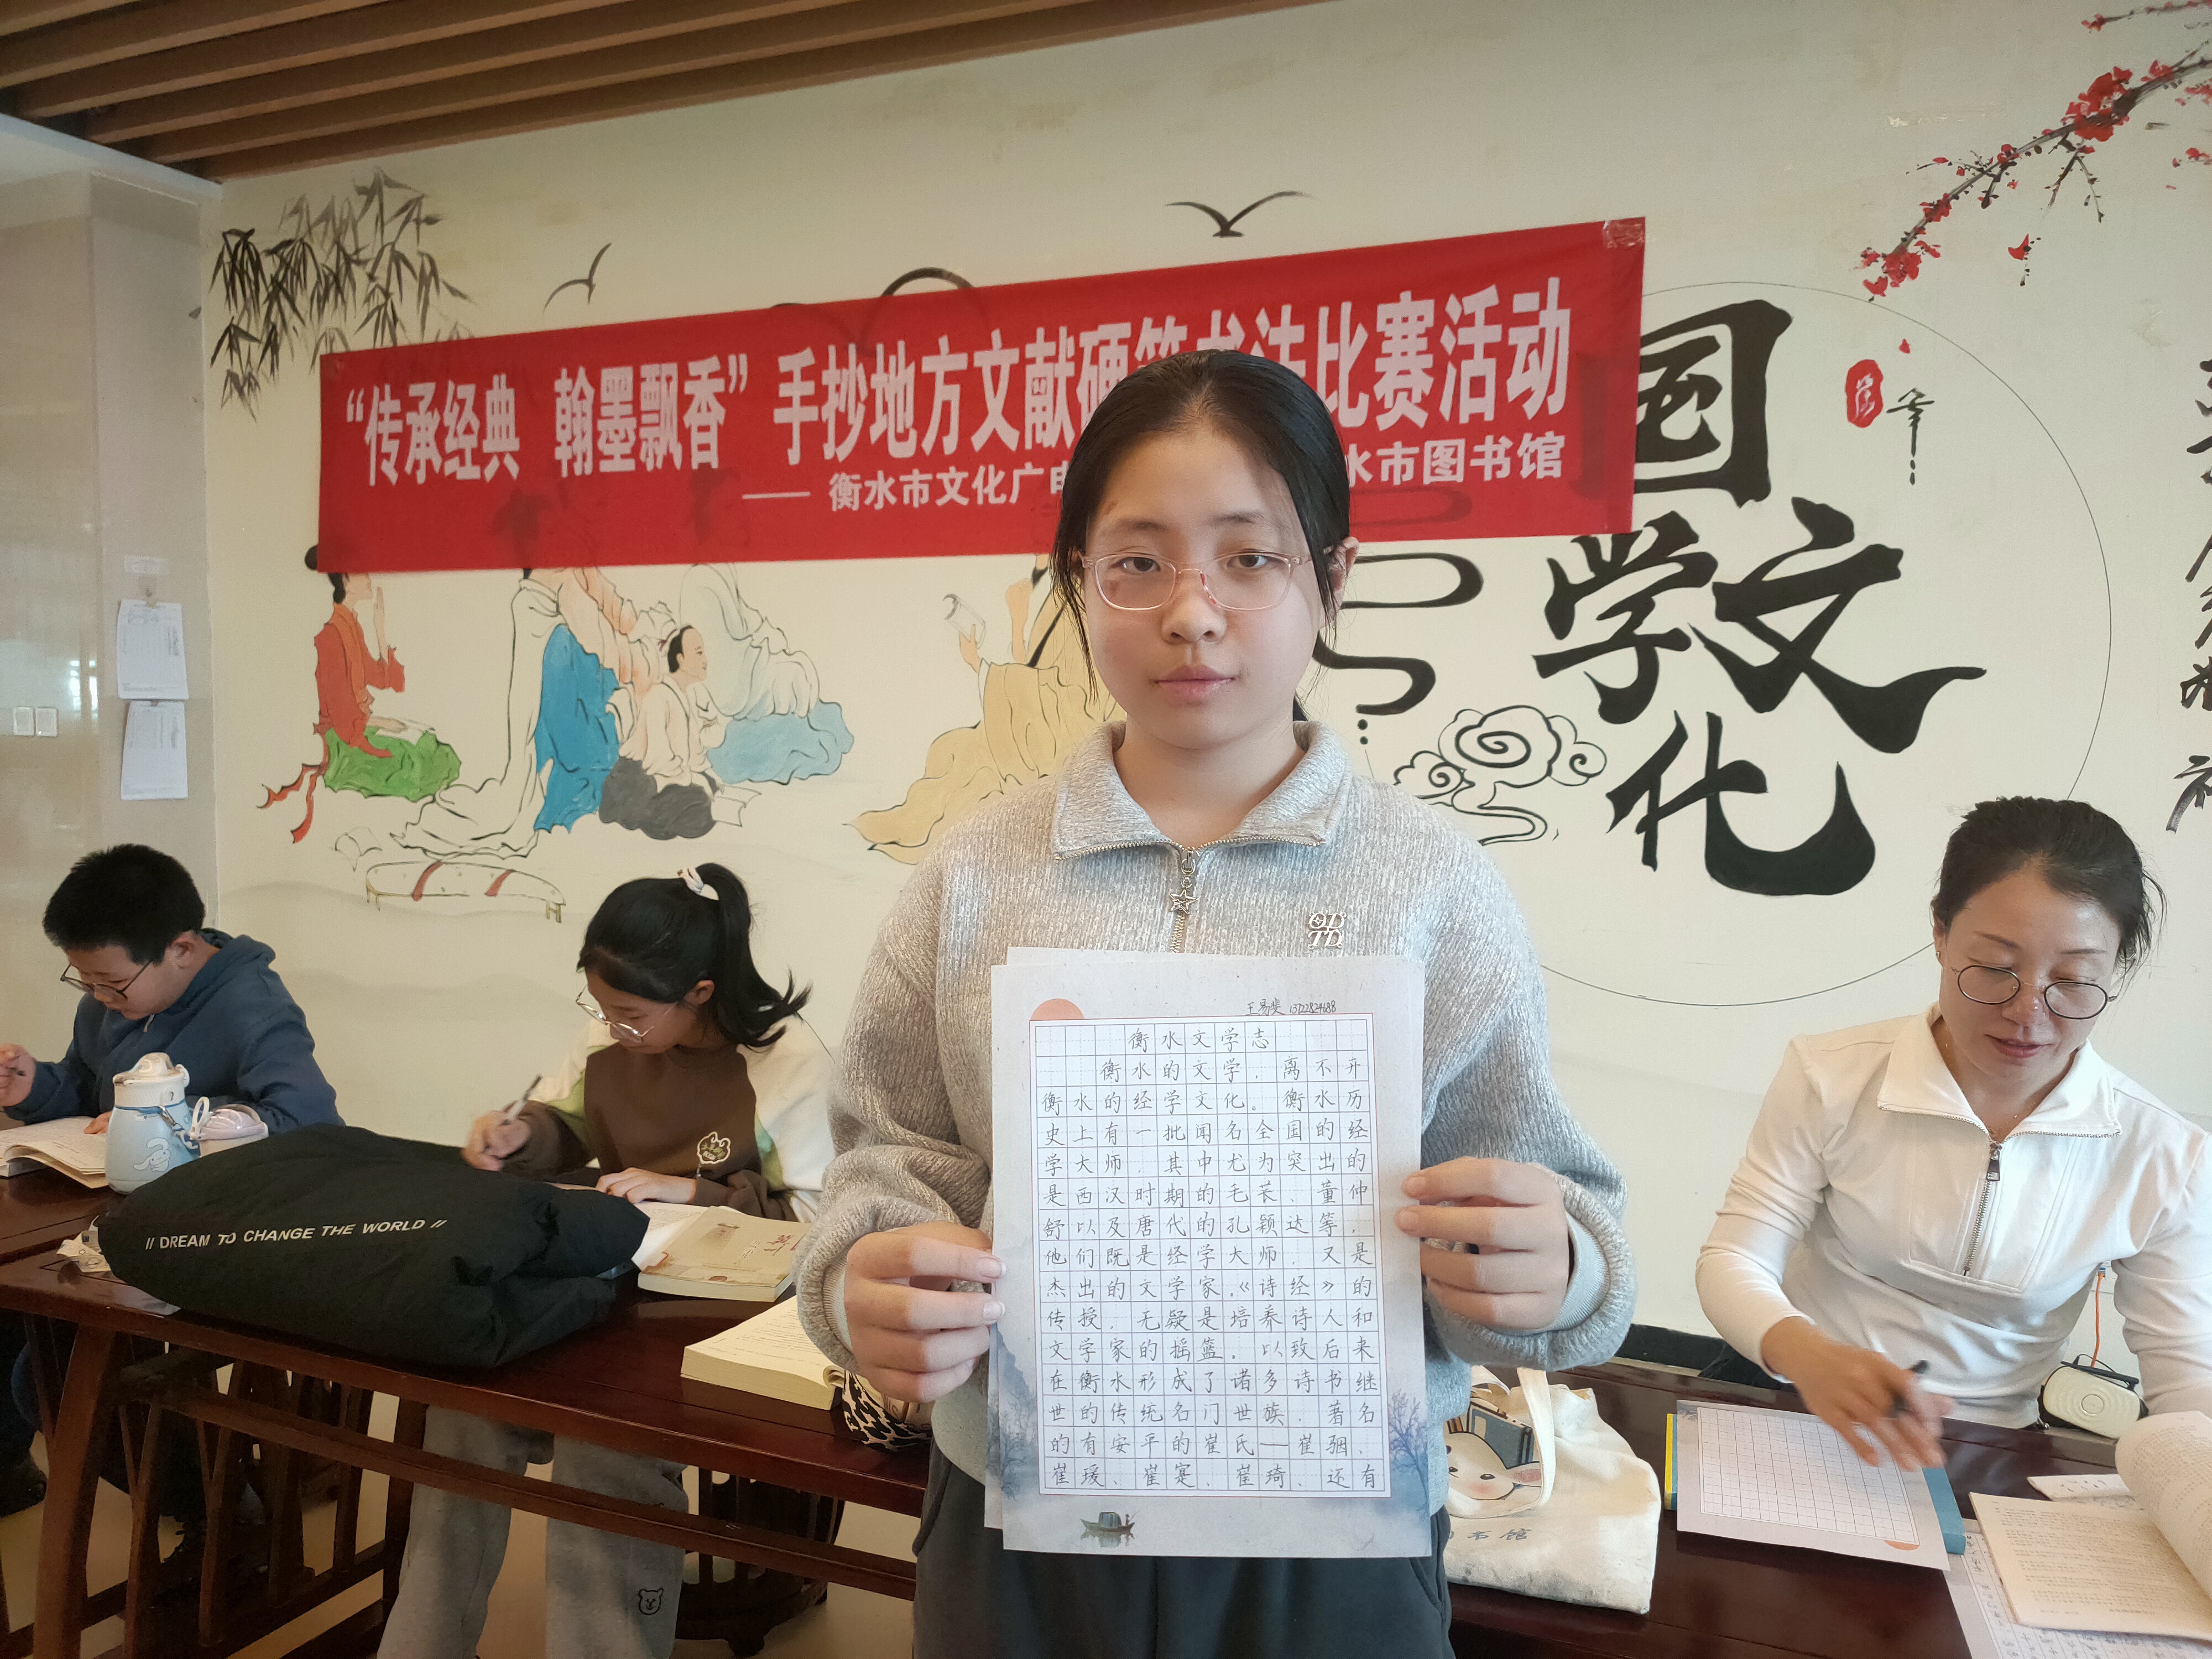 “传承经典 翰墨飘香”手抄地方文献硬笔书法比赛活动
—— 衡水市文化广电
水市图书馆
国
学文
化
王易斐 13722824688
衡水文学志
衡水的文学，离不开
衡水的经学文化。衡水历
史上有一批闻名全国的经
学大师，其中尤为突出的
是西汉时期的毛苌、董仲
舒以及唐代的孔颖达等，
他们既是经学大师，又是
杰出的文学家，《诗经》的
传授，无疑是培养诗人和
文学家的摇篮，以致后来
在衡水形成了诸多诗书继
世的传统名门世族，著名
的有安平的崔氏——崔骃、
崔瑗、崔寔、崔琦、还有
// DREAM TO CHANGE THE WORLD //
书馆